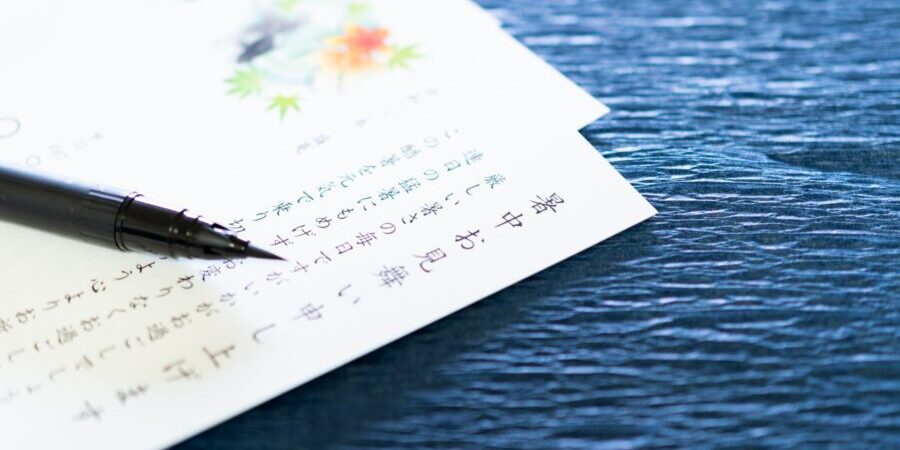 暑中お見舞い申し上げます
厳しい暑さの毎日ですがいかがお過ごしでしょう
連日の猛暑にもめげずお変わりなくお過ごし
この酷暑を元気で乗り切 より心よりお